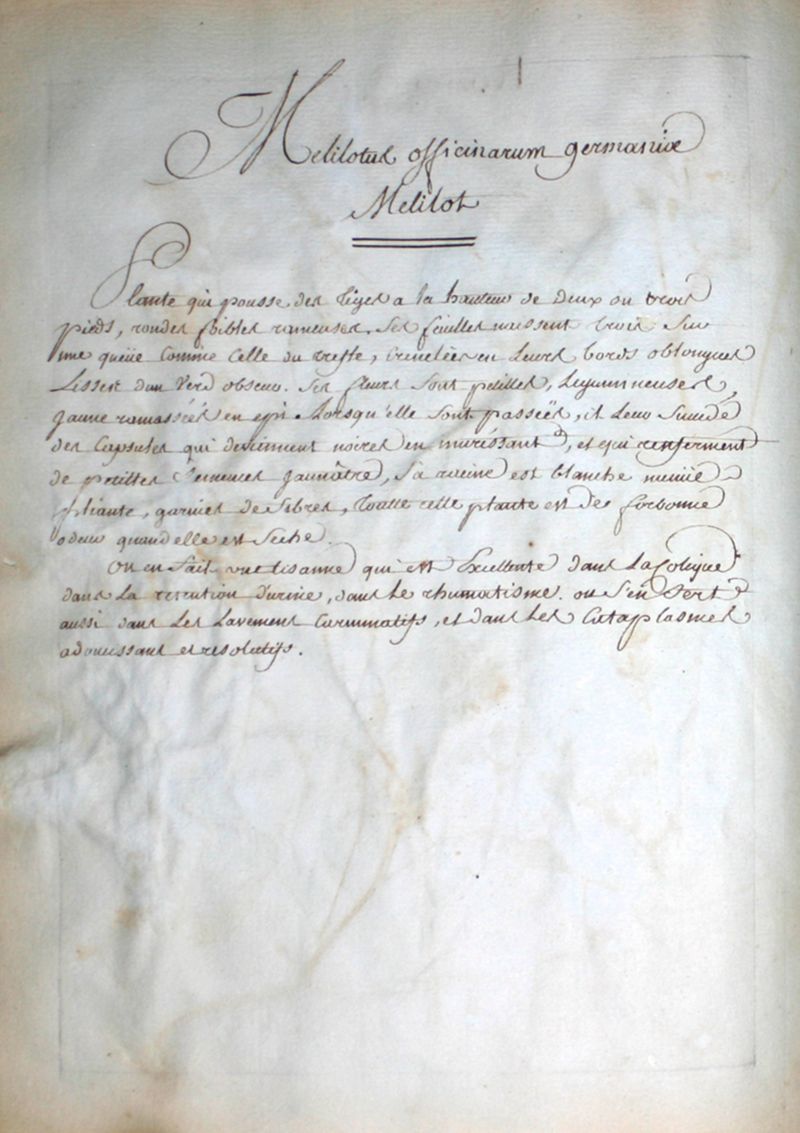 Melilotus officinarum germaniæ
Melilot
Plante qui pousse des tiges a la hauteur de deux ou trois
pieds, rondes foibles rameuses, ses feuilles naissent trois sur
une queüe comme celle du treffe, crenelées en leurs bords oblongues
Lisses d'un verd obscur. ses fleurs sont petites, Legumineuses,
jaune ramassées en epi. Lorsqu'elle sont passeës, il leur succéde
des capsules qui deviennent noires en murissant, et qui renferment
de petittes semences jaunâtre, sa racine est blanche menüe
pliante, garnies de fibres, Toutte cette plante est de fort bonne
odeur quand elle est seche.
On en fait une tisanne qui est Excellente dans la Colique
dans la retention d'urine, dans le rhumatisme. on s'en sert
aussi dans les Lavement Carminatifs, et dans les Cataplasmes
adoucissant et resolutifs.